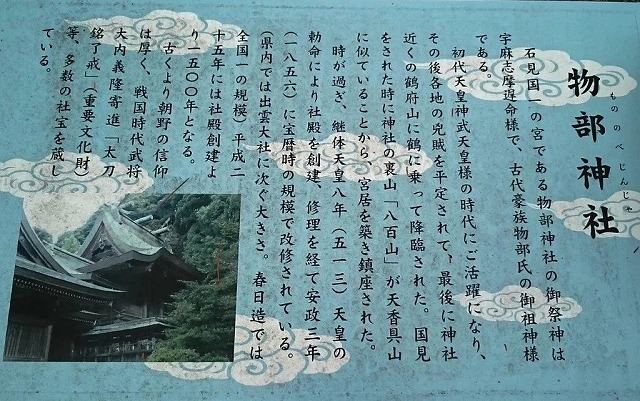 物部神社
もののべじんじゃ
石見国一の宮である物部神社の御祭神は
宇麻志麻遅命様で、古代豪族物部氏の御祖神様
である。
初代天皇神武天皇様の時代にご活躍になり、
その後各地の兇賊を平定されて、最後に神社
近くの鶴府山に鶴に乗って降臨された。国見
をされた時に神社の裏山「八百山」が天香具山
に似ていることから、宮居を築き鎮座された。
時が過ぎ、継体天皇八年（五一三）天皇の
勅命により社殿を創建、修理を経て安政三年
（一八五六）に宝暦時の規模で改修されている。
（県内では出雲大社に次ぐ大きさ。春日造では
全国一の規模）平成二
十五年には社殿創建よ
り一五〇〇年となる。
古くより朝野の信仰
は厚く、戦国時代武将
大内義隆寄進「太刀
銘了戒」（重要文化財）
等、多数の社宝を蔵し
ている。